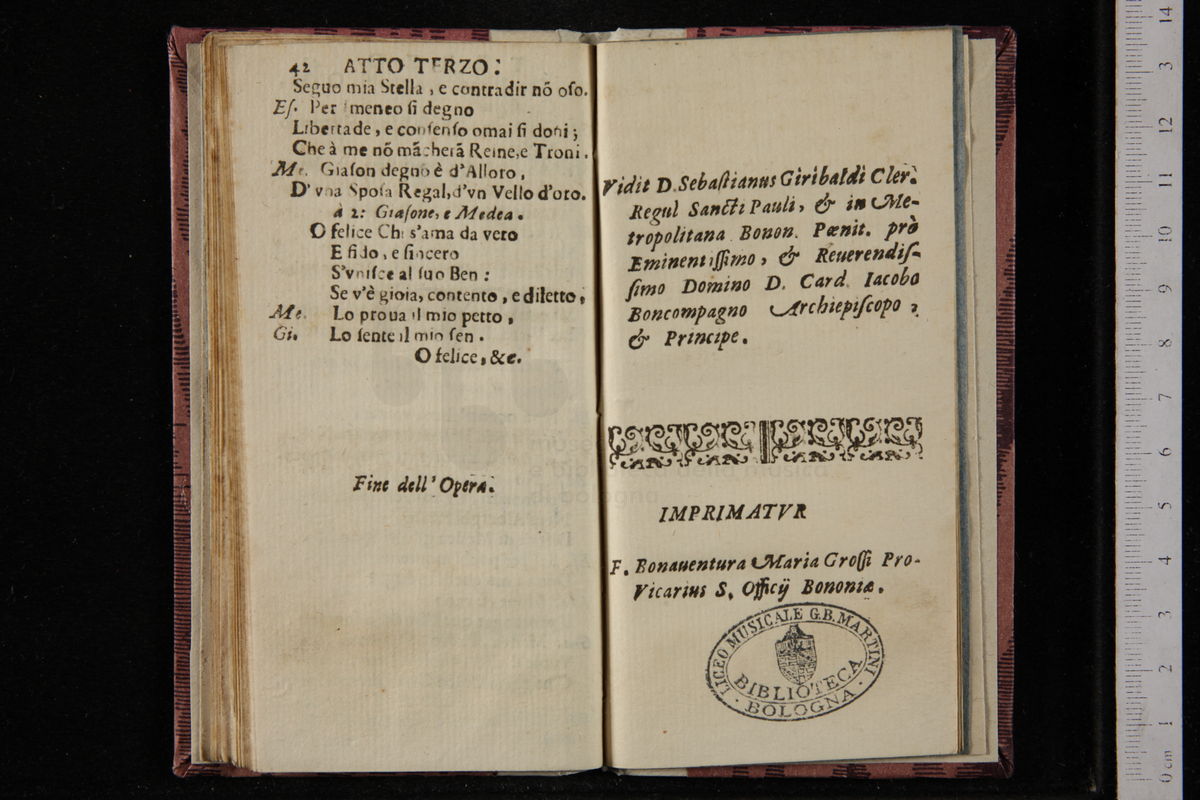 42 ATTO TERZO:
Seguo mia Stella, e contradir nõ oso.
Es. Per Imeneo si degno
Libertade, e consenso omai si doni;
Che à me nõ mãcherã Reine, e Troni.
Me. Giason degno è d'Alloro,
D'vna Sposa Regal, d'vn Vello d'oro.
à 2: Giasone, e Medea.
O felice Chi s'ama da vero
E fido, e sincero
S'vnisce al suo Ben:
Se v'è gioia, contento, e diletto,
Me. Lo proua il mio petto,
Gi. Lo sente il mio sen.
O felice, &c.
Fine dell'Opera.
Vidit D. Sebastianus Giribaldi Cler.
Regul Sancti Pauli, & in Me-
tropolitana Bonon. Pœnit. prò
Eminentissimo, & Reuerendis-
simo Domino D. Card. Iacobo
Boncompagno Archiepiscopo,
& Principe.
IMPRIMATVR
F. Bonauentura Maria Grossi Pro-
Vicarius S. Officij Bononiæ.
LICEO MUSICALE G.B. MARTINI
BIBLIOTECA
· BOLOGNA ·
0 cm 1 2 3 4 5 6 7 8 9 10 11 12 3 14